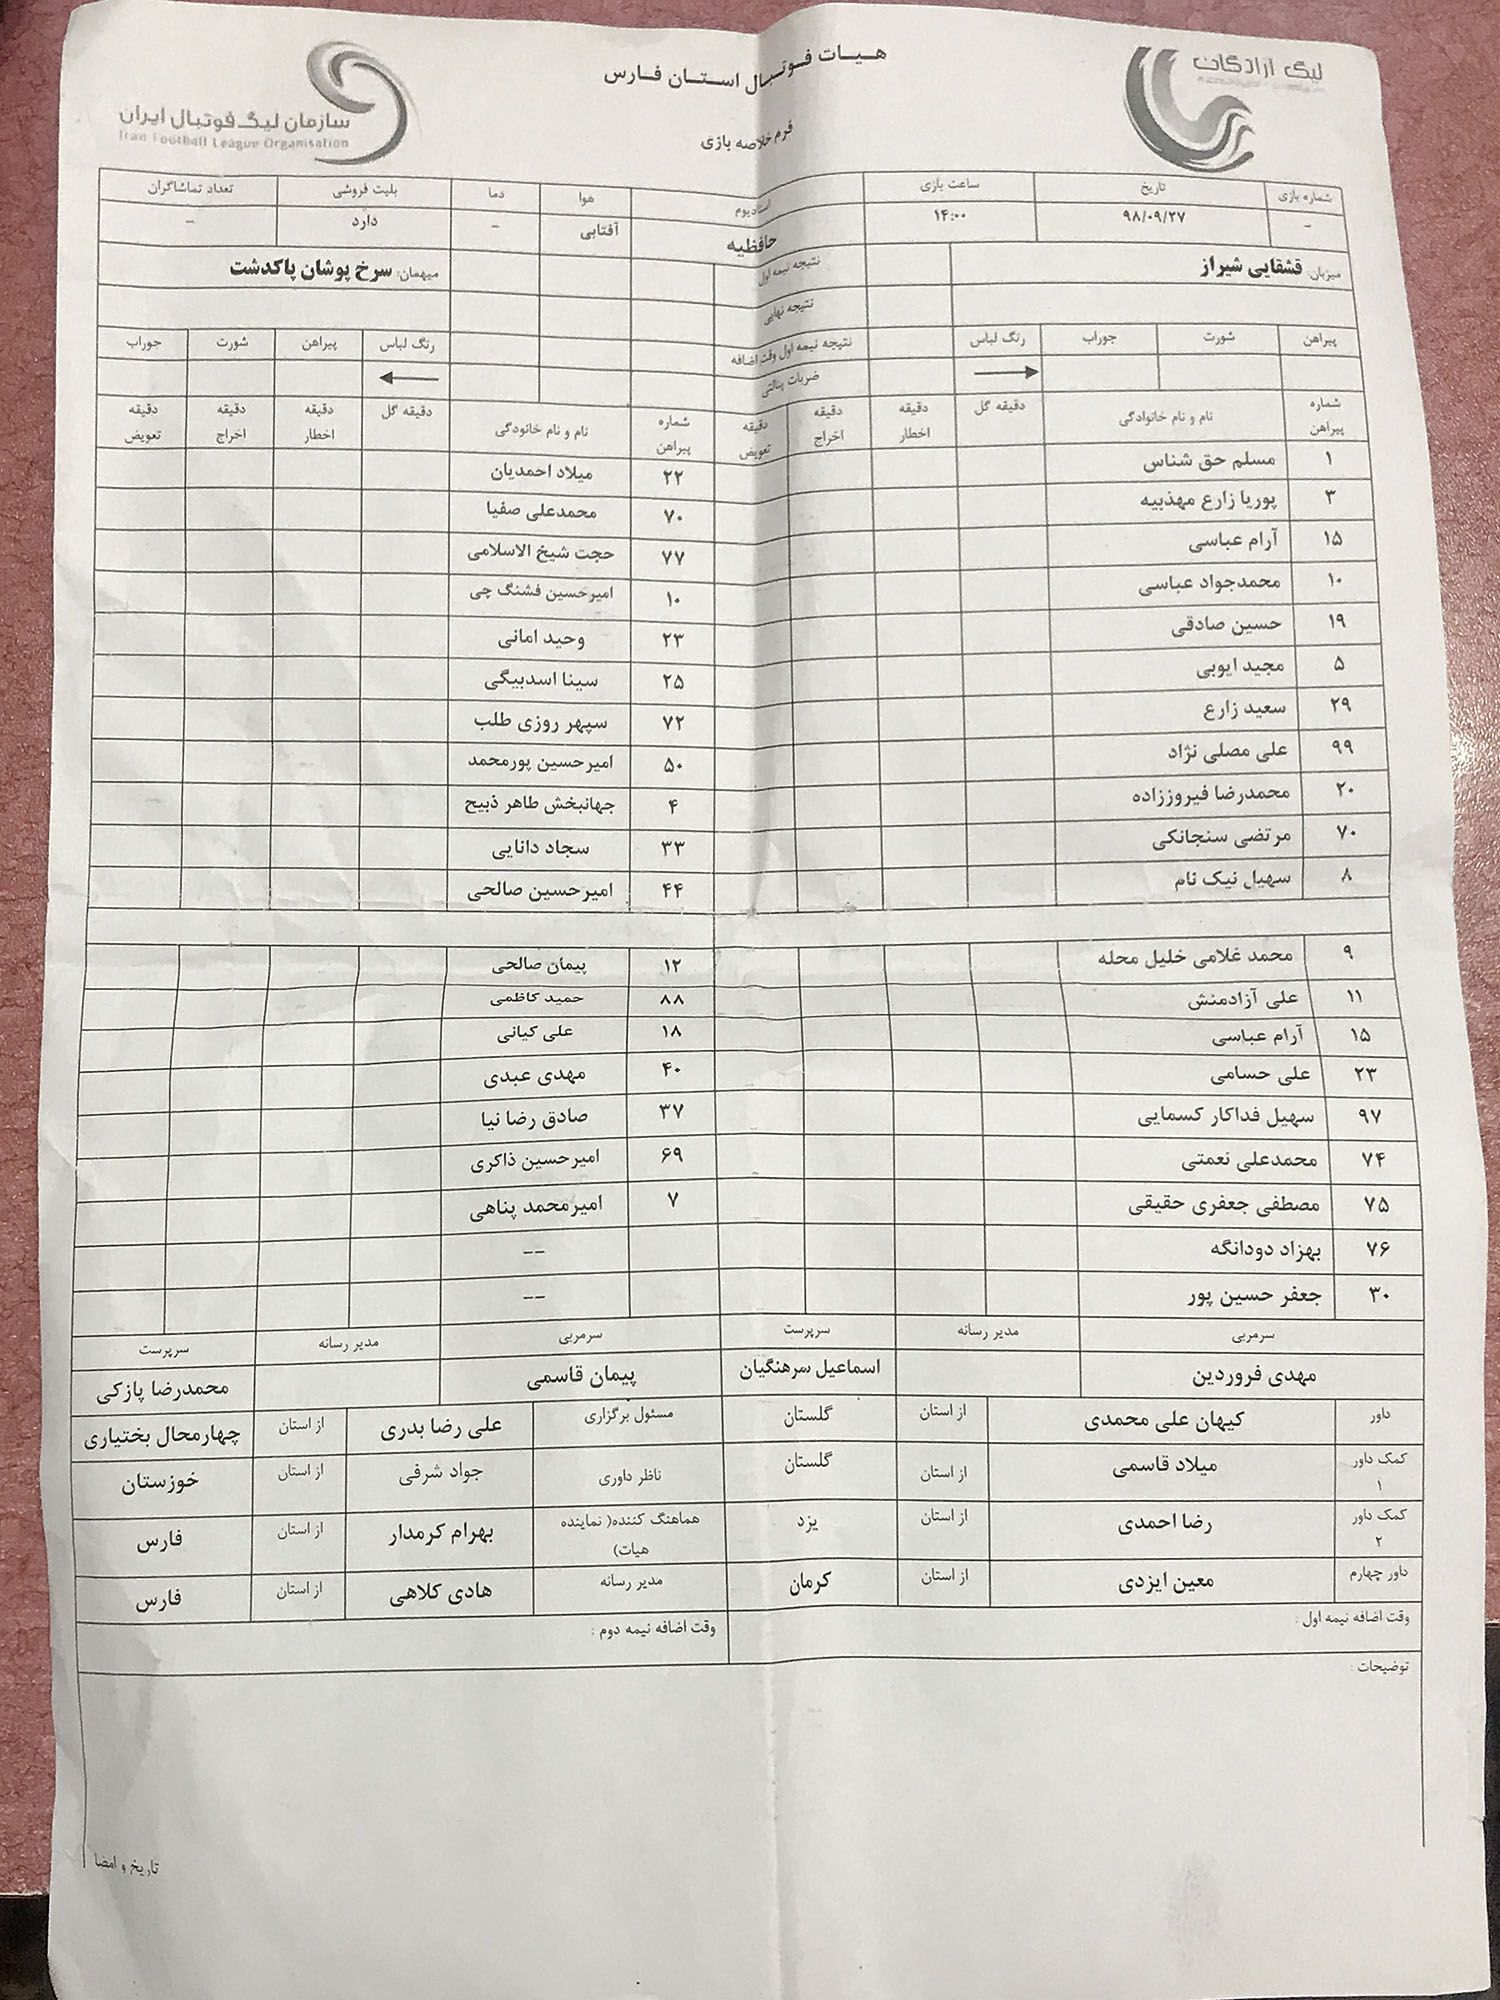 لیگ آزادگان
هیات فوتبال استان فارس
سازمان لیگ فوتبال ایران
Iran Football League Organisation
فرم خلاصه بازی
شماره بازی تاریخ ساعت بازی استادیوم هوا دما بلیت فروشی تعداد تماشاگران
- ۹۸/۰۹/۲۷ ۱۴:۰۰ حافظیه آفتابی - دارد -
میزبان: قشقایی شیراز نتیجه نیمه اول میهمان: سرخ پوشان پاکدشت
نتیجه نهایی
پیراهن شورت جوراب رنگ لباس نتیجه نیمه اول وقت اضافه رنگ لباس پیراهن شورت جوراب
ضربات پنالتی
شماره پیراهن نام و نام خانوادگی دقیقه گل دقیقه اخطار دقیقه اخراج دقیقه تعویض شماره پیراهن نام و نام خانودگی دقیقه گل دقیقه اخطار دقیقه اخراج دقیقه تعویض
۱ مسلم حق شناس ۲۲ میلاد احمدیان
۳ پوریا زارع مهذبیه ۷۰ محمدعلی صفیا
۱۵ آرام عباسی ۷۷ حجت شیخ الاسلامی
۱۰ محمدجواد عباسی ۱۰ امیرحسین فشنگ چی
۱۹ حسین صادقی ۲۳ وحید امانی
۵ مجید ایوبی ۲۵ سینا اسدبیگی
۲۹ سعید زارع ۷۲ سپهر روزی طلب
۹۹ علی مصلی نژاد ۵۰ امیرحسین پورمحمد
۲۰ محمدرضا فیروززاده ۴ جهانبخش طاهر ذبیح
۷۰ مرتضی سنجانکی ۳۳ سجاد دانایی
۸ سهیل نیک نام ۴۴ امیرحسین صالحی
۹ محمد غلامی خلیل محله ۱۲ پیمان صالحی
۱۱ علی آزادمنش ۸۸ حمید کاظمی
۱۵ آرام عباسی ۱۸ علی کیانی
۲۳ علی حسامی ۴۰ مهدی عبدی
۹۷ سهیل فداکار کسمایی ۳۷ صادق رضا نیا
۷۴ محمدعلی نعمتی ۶۹ امیرحسین ذاکری
۷۵ مصطفی جعفری حقیقی ۷ امیرمحمد پناهی
۷۶ بهزاد دودانگه --
۳۰ جعفر حسین پور --
سرمربی مدیر رسانه سرپرست سرمربی مدیر رسانه سرپرست
مهدی فروردین اسماعیل سرهنگیان پیمان قاسمی محمدرضا پازکی
داور کیهان علی محمدی از استان گلستان مسئول برگزاری علی رضا بدری از استان چهارمحال بختیاری
کمک داور ۱ میلاد قاسمی از استان گلستان ناظر داوری جواد شرفی از استان خوزستان
کمک داور ۲ رضا احمدی از استان یزد هماهنگ کننده( نماینده هیات) بهرام کرمدار از استان فارس
داور چهارم معین ایزدی از استان کرمان مدیر رسانه هادی کلاهی از استان فارس
وقت اضافه نیمه اول : وقت اضافه نیمه دوم :
توضیحات :
تاریخ و امضا